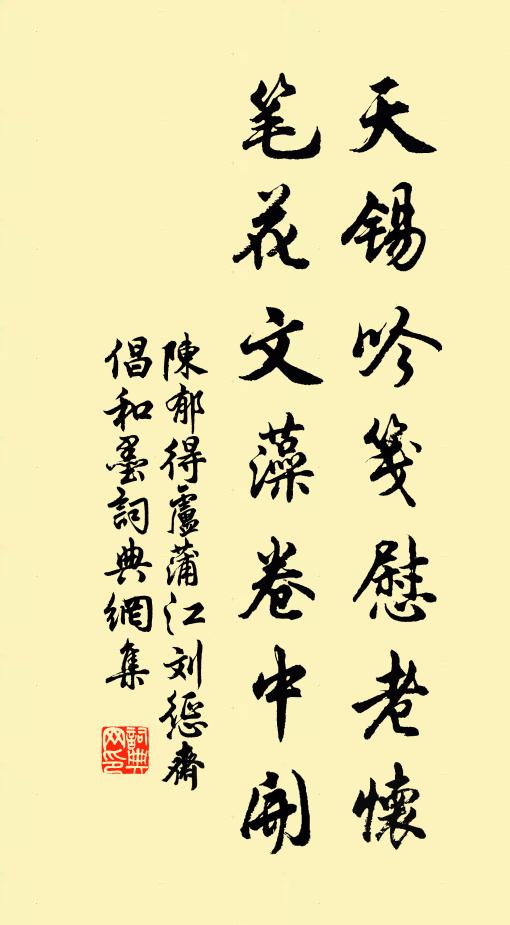 天锡吟笺慰老懷
笔花文藻卷中開
陳郁得盧蒲江刘惩齋
倡和墨詞典網集
詞典网印